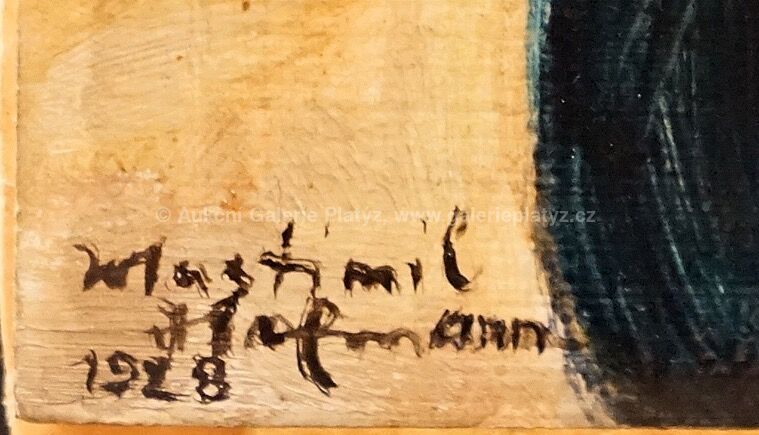 © Aukční Galerie Platýz, www.galerieplatyz.cz
Wlastimil
Hofmann
1928